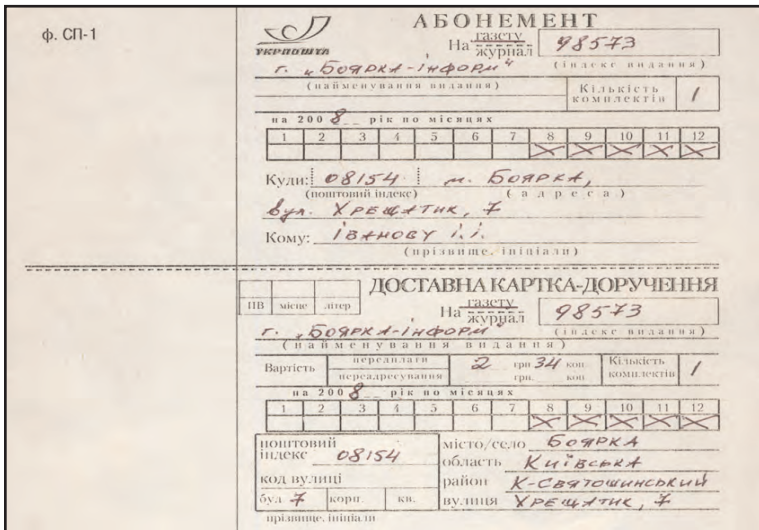 ф. СП-1
УКРПОШТА
АБОНЕМЕНТ
На газету журнал 98573
(індекс видання)
г. „Боярка-інформ"
(найменування видання)
Кількість комплектів 1
на 2008 рік по місяцях
1 2 3 4 5 6 7 8 9 10 11 12
Куди: 08154 м. Боярка,
(поштовий індекс) (адреса)
вул. Хрещатик, 7
Кому: Іванову І.І.
(прізвище, ініціали)
ДОСТАВНА КАРТКА-ДОРУЧЕННЯ
ПВ місце літер
На газету журнал 98573
(індекс видання)
г. „Боярка-інформ"
(найменування видання)
Вартість передплати 2 грн 34 коп Кількість комплектів 1
переадресування грн. коп
на 2008 рік по місяцях
1 2 3 4 5 6 7 8 9 10 11 12
поштовий індекс 08154
код вулиці
буд 7 корп. кв.
прізвище, ініціали
місто/село Боярка
область Київська
район К-Святошинський
вулиця Хрещатик, 7